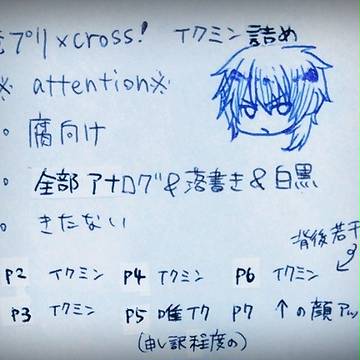 プリ×cross! イクミン詰め
※ attention※
・腐向け
。全部アナログ&落書き&白黒
。きたない
背後若干
P2 イクミン P4 イクミン P6 イクミン
P3 イクミン P5 唯イク P7 ↑の顔アッ
(申し訳程度の)